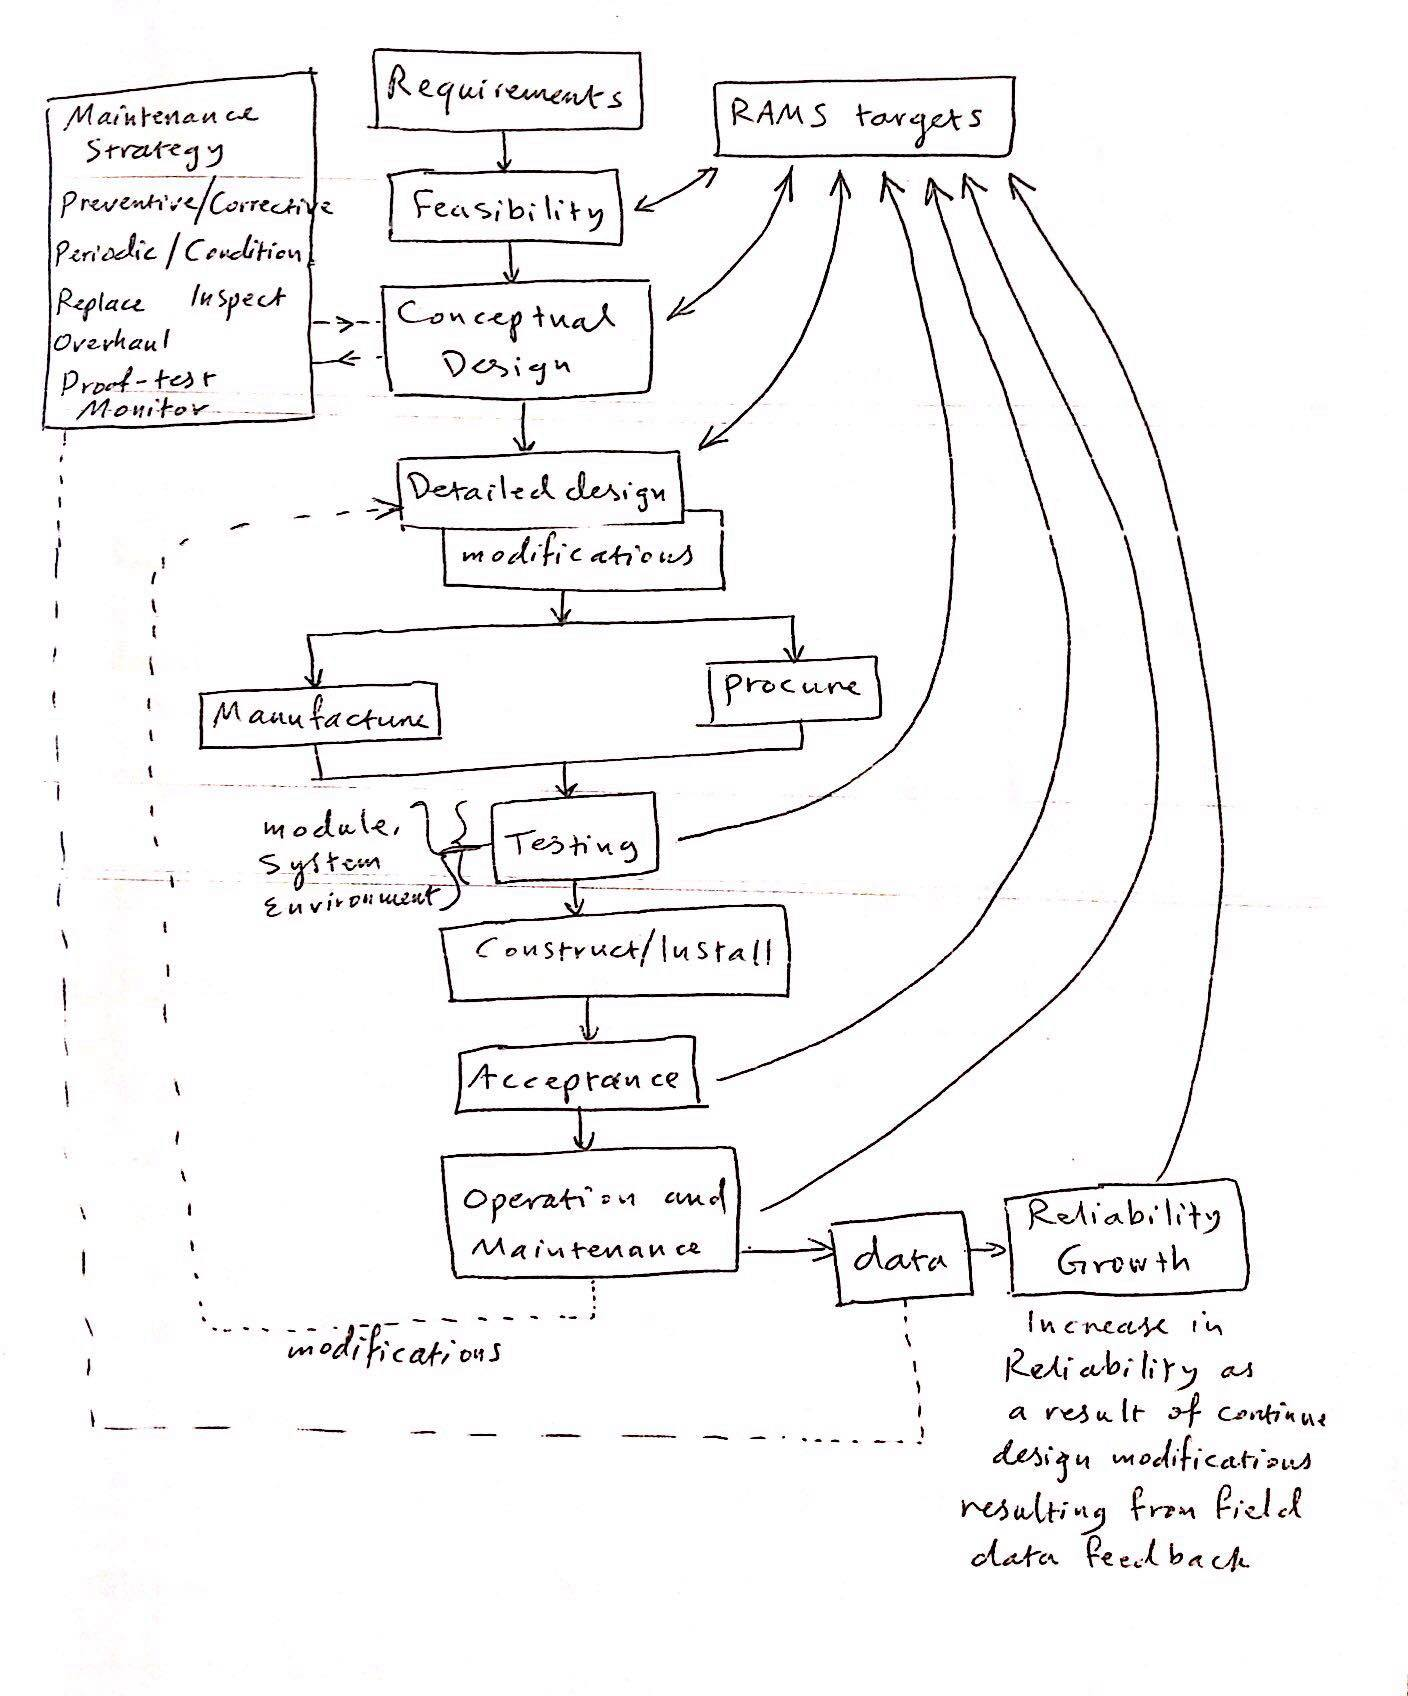 Requirements
RAMS targets
Maintenance
Strategy
Preventive/Corrective
Periodic/Condition
Replace Inspect
Overhaul
Proof-test
Monitor
Feasibility
Conceptual
Design
Detailed design
modifications
Manufacture
Procure
module,
System
Environment
Testing
Construct/Install
Acceptance
Operation and
Maintenance
data
Reliability
Growth
modifications
Increase in
Reliability as
a result of continue
design modifications
resulting from field
data feedback